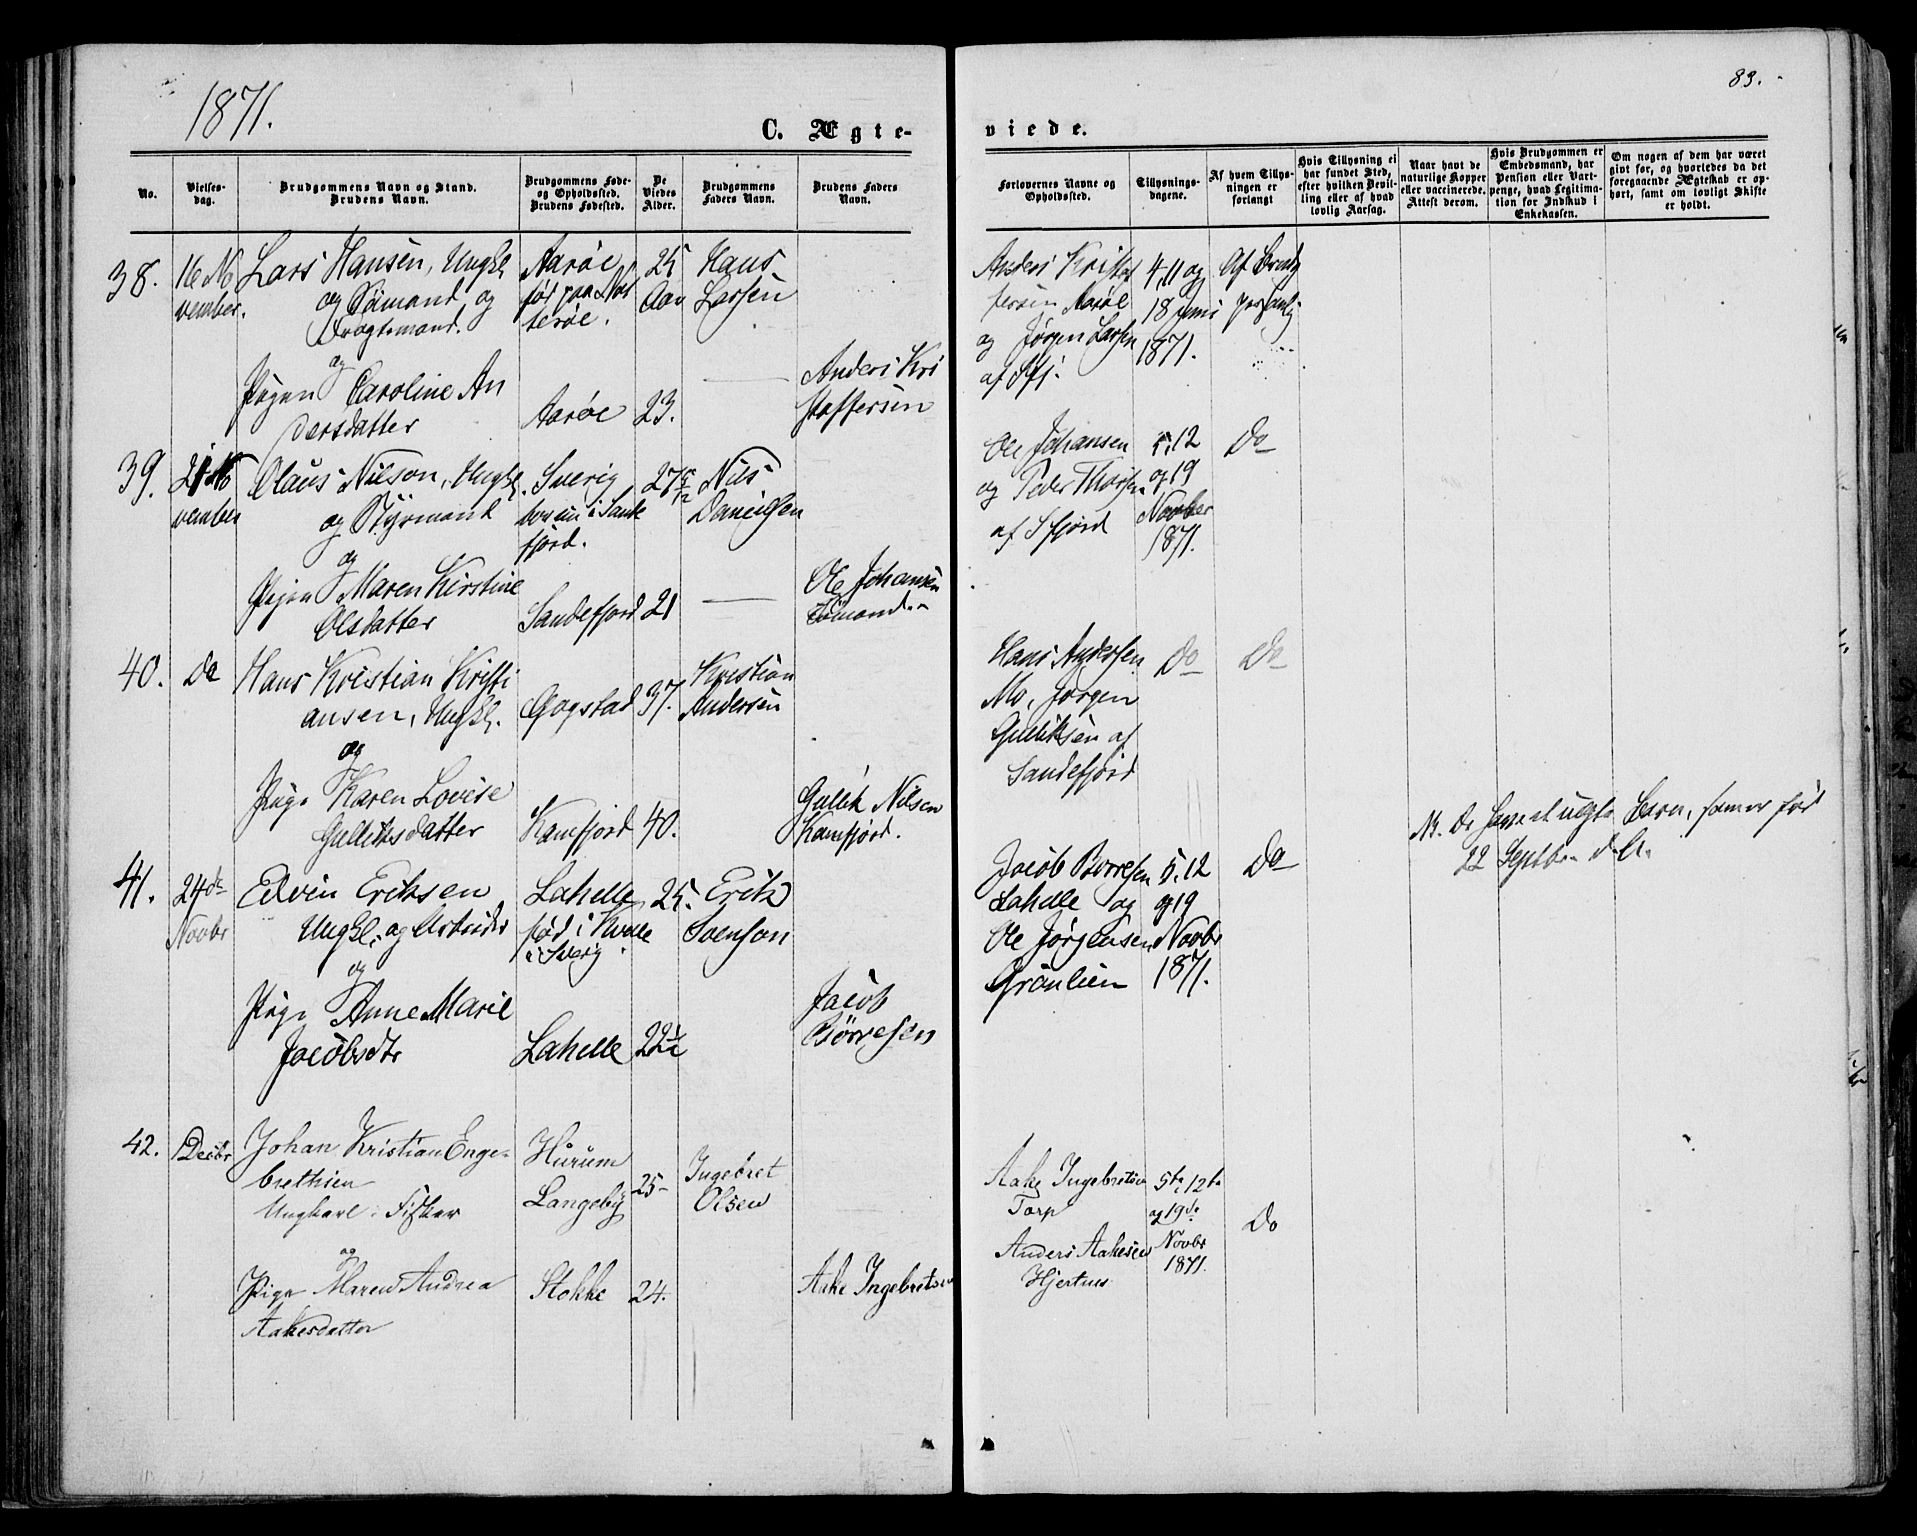 1871.
83.
C. Ægte-
viede.
No.
Vielses-
dag.
Brudgommens Navn og Stand.
Brudens Navn.
Brudgommens Føde-
og Opholdssted.
Brudens Fødested.
De
Viedes
Alder.
Brudgommens
Faders Navn.
Brudens Faders
Navn.
Forlovernes Navne og
Opholdssted.
Tillysnings-
dagene.
Af hvem Tillys-
ningen er
forlangt
Hvis Tillysning ei
har fundet Sted,
efter hvilken Bevil-
ling eller af hvad
lovlig Aarsag.
Naar havt de
naturlige Kopper
eller vaccinerede.
Attest derom.
Hvis Brudgommen er
Embedsmand, har
Pension eller Vart-
penge, hvad Legitima-
tion for Indskud i
Enkekassen.
Om nogen af dem har været
gift før, og hvorledes da det
foregaaende Ægteskab er op-
hørt, samt om lovligt Skifte
er holdt.
38.
16 No
vember.
Lars Hansen, Ungkl
og Sømand og
Dragtsmand.
og
Pigen Caroline An
dersdatter
Aarøe
født paa Nøt
terøe.
Aarøe
25
Aar
23.
Hans
Larsen
Anders Kri
stoffersen
Anders Kristof
fersen Aarøe
og Jørgen Larsen
af Sfj.
4, 11 og
18 Juni
1871.
Af Brudg
personlig
39.
21 No
vember
Olaus Nilson, Ungkl.
og Styrmand
og
Pigen Maren Kirstine
Olsdatter
Sverig
boende i Sande
fjord.
Sandefjord
27 5/12
21
Nils
Danielsen
Ole Johansen
Sømand
Ole Johansen
og Peder Thorsen
af Sfjord
5, 12
og 19
Novber
1871.
Do
40.
Do
Hans Kristian Kristi
ansen, Ungkl.
og
Pige Karen Lovise
Gulliksdatter
Gogstad
Kamfjord
37.
40.
Kristian
Andersen
Gullik Nilsen
Kamfjord.
Hans Andersen
Mo, Jørgen
Gulliksen af
Sandefjord
Do
Do
NB. De have et uægte Barn, som er født
22 Septbr d. A.
41.
24de
Novbr
Edvin Eriksen
Ungkl. og Arbeider
og
Pige Anne Marie
Jacobsdtr
Lahelle
født i Kville
i Sverig.
Lahelle
25.
22 1/2
Erik
Svenson
Jacob
Børresen
Jacob Borresen
Lahelle og
Ole Jørgensen
Grønlien
5, 12
og 19
Novbr
1871.
Do
42.
1 Decbr
Johan Kristian Enge-
brethsen
Ungkarl. Fisker
og
Pige Maren Andrea
Aakesdatter
Hurum
Langeby
Stokke
25
24.
Ingebret
Olsen
Aake Ingebretsen
Aake Ingebretsen
Torp
Anders Aakesen
Hjertnes
5te, 12te
og 19de
Novbr
1871.
Do